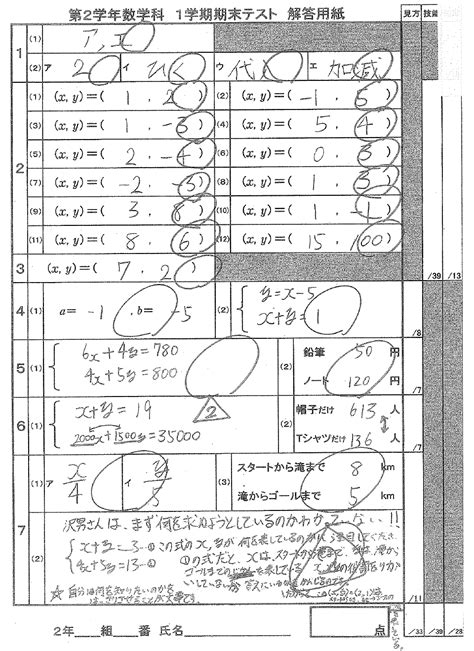 第2学年数学科 1学期期末テスト 解答用紙
見方 技能
1
(1) ア, エ
(2) ア 2 イ ひく ウ 代入 エ 加減
2
(1) (x, y)=( 1 , 2 ) (2) (x, y)=( -1 , 5 )
(3) (x, y)=( 1 , -3 ) (4) (x, y)=( 5 , 4 )
(5) (x, y)=( 2 , -4 ) (6) (x, y)=( 0 , 3 )
(7) (x, y)=( -2 , -5 ) (8) (x, y)=( 1 , 3 )
(9) (x, y)=( 3 , 8 ) (10) (x, y)=( 1 , -1 )
(11) (x, y)=( 8 , 6 ) (12) (x, y)=( 15 , 100 )
/39 /13
3 (x, y)=( 7 , 2 )
4
(1) a= -1 , b= -5 (2) y=x-5
x+y=1
/8
5
(1) 6x+4y=780
4x+5y=800
(2) 鉛筆 50 円
ノート 120 円
/7
6
(1) x+y=19
2000x+1500y=35000
2
(2) 帽子だけ 613 人
Tシャツだけ 136 人
/7
7
(1) ア x/4 イ y/5
(3) スタートから滝まで 8 km
滝からゴールまで 5 km
(2) 沢男さんは、まず何を求めようとしているのかわからない!!
x+y=3-① この式のx,yが何を表しているのか
=13-② ①の式だと、xは、スタートから滝まで、
☆自分は何を知りたいのかを
はっきりさせることが大事です
/11
2年 組 番 氏名 点
/33 /39 /28